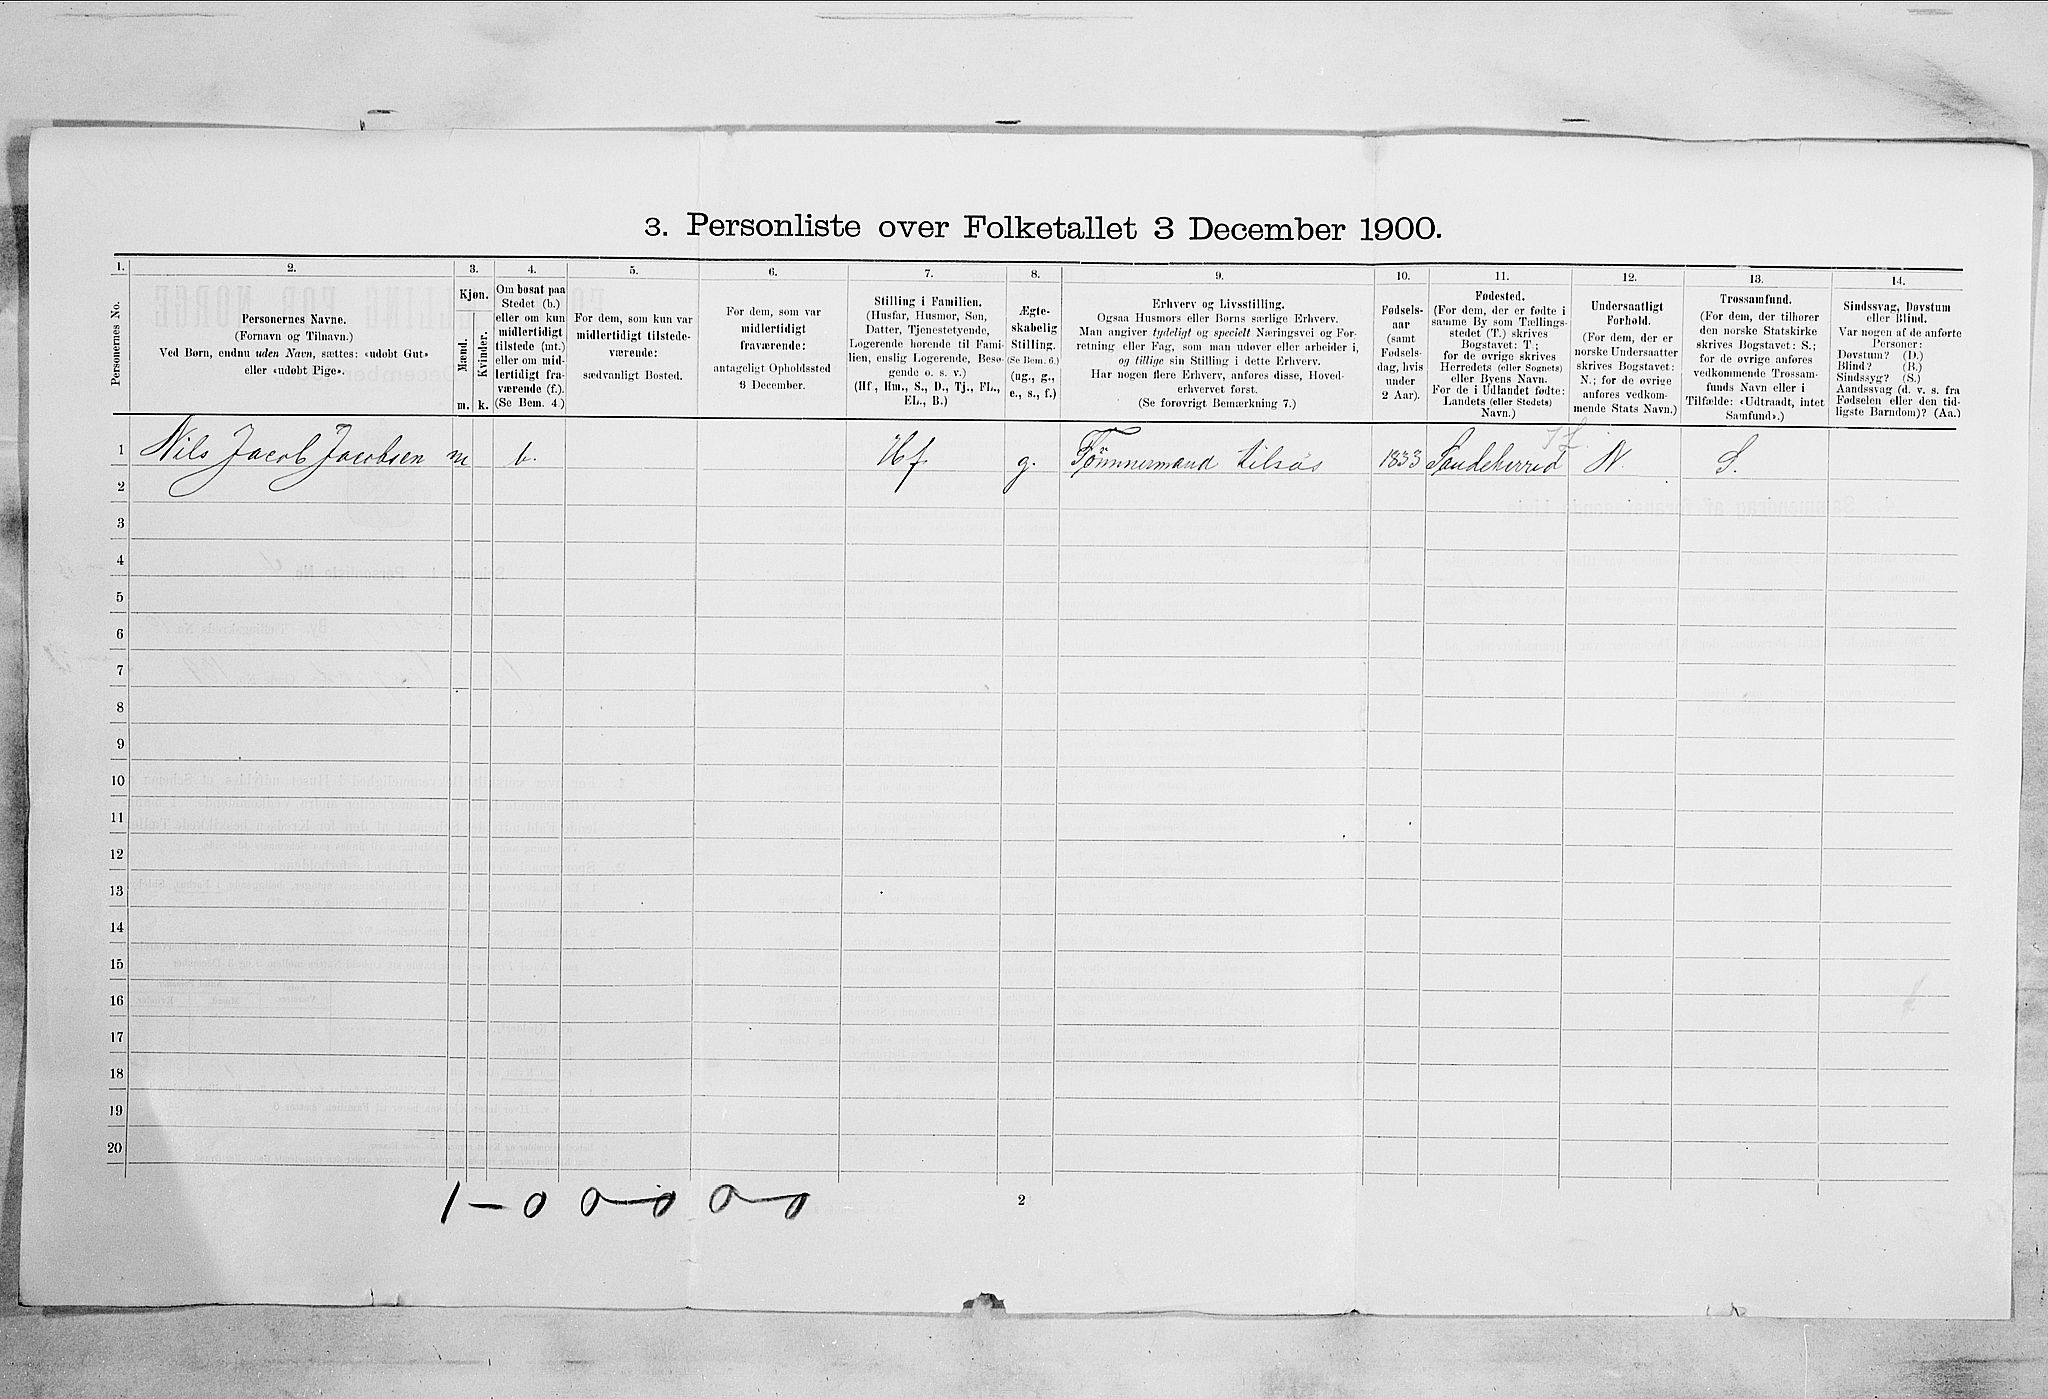 3. Personliste over Folketallet 3 December 1900.
1. 2. 3. 4. 5. 6. 7. 8. 9. 10. 11. 12. 13. 14.
Personernes No.
Personernes Navne.
(Fornavn og Tilnavn.)
Ved Børn, endnu uden Navn, sættes: «udøbt Gut»
eller «udøbt Pige».
Kjøn.
Mænd.
Kvinder.
m. k.
Om bosat paa
Stedet (b.)
eller om kun
midlertidigt
tilstede (mt.)
eller om mid-
lertidigt fra-
værende (f.).
(Se Bem. 4.)
For dem, som kun var
midlertidigt tilstede-
værende:
sædvanligt Bosted.
For dem, som var
midlertidigt
fraværende:
antageligt Opholdssted
3 December.
Stilling i Familien.
(Husfar, Husmor, Søn,
Datter, Tjenestetyende,
Logerende hørende til Fami-
lien, enslig Logerende, Besø-
gende o. s. v.)
(Hf, Hm., S., D., Tj., FL.,
EL., B.)
Ægte-
skabelig
Stilling.
(Se Bem. 6.)
(ug., g.,
e., s., f.)
Erhverv og Livsstilling.
Ogsaa Husmors eller Børns særlige Erhverv.
Man angiver tydeligt og specielt Næringsvei og For-
retning eller Fag, som man udøver eller arbeider i,
og tillige sin Stilling i dette Erhverv.
Har nogen flere Erhverv, anføres disse, Hoved-
erhvervet først.
(Se forøvrigt Bemærkning 7.)
Fødsels-
aar
(samt
Fødsels-
dag, hvis
under
2 Aar).
Fødested.
(For dem, der er fødte i
samme By som Tællings-
stedet (T.) skrives
Bogstavet: T.;
for de øvrige skrives
Herredets (eller Sognets)
eller Byens Navn.
For de i Udlandet fødte:
Landets (eller Stedets)
Navn.)
Undersaatligt
Forhold.
(For dem, der er
norske Undersaatter
skrives Bogstavet:
N.; for de øvrige
anføres vedkom-
mende Stats Navn.)
Trossamfund.
(For dem, der tilhører
den norske Statskirke
skrives Bogstavet: S.;
for de øvrige anføres
vedkommende Trossam-
funds Navn eller i
Tilfælde: «Udtraadt, intet
Samfund».)
Sindssvag, Døvstum
eller Blind.
Var nogen af de anførte
Personer:
Døvstum? (D.)
Blind? (B.)
Sindssyg? (S.)
Aandssvag (d. v. s. fra
Fødselen eller den tid-
ligste Barndom)? (Aa.)
1 Nils Jacob Jacobsen m b. Hf g. Tømmermand tilsøs 1833 Sandeherred N. S.
2
3
4
5
6
7
8
9
10
11
12
13
14
15
16
17
18
19
20
1-0 0-0 0-0
2